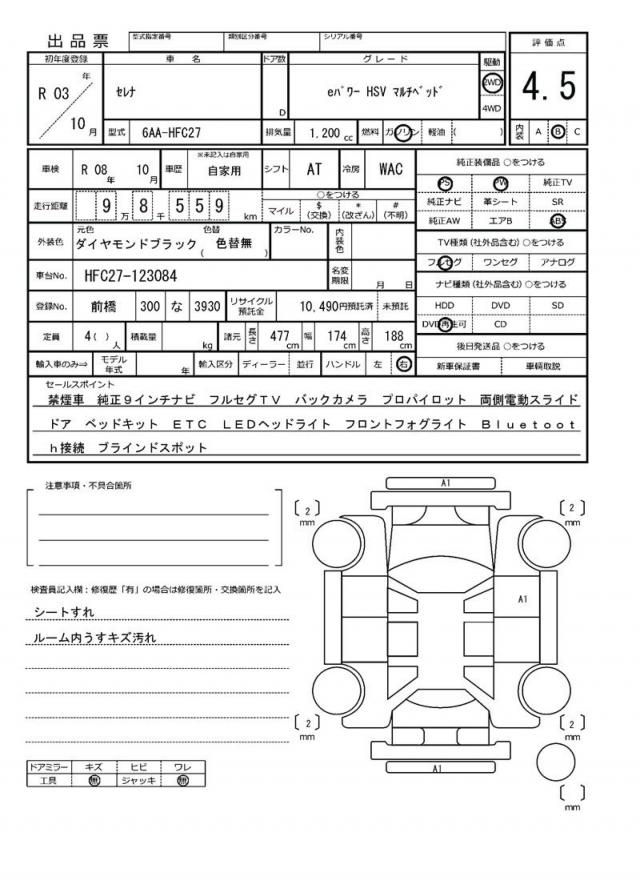 出品票
型式指定番号 類別区分番号 シリアル番号
初年度登録 車名 ドア数 グレード 駆動 評価点
R 03 年 10 月 セレナ D eパワー HSV マルチベッド 2WD 4WD 4.5
型式 6AA-HFC27 排気量 1,200 cc 燃料 ガソリン 軽油 ( ) 内装 A B C
車検 R 08 年 10 月 車歴 ※未記入は自家用 自家用 シフト AT 冷房 WAC
走行距離 9 万 8 千 5 5 9 km
○をつける
マイル $ (交換) * (改ざん) # (不明)
外装色 元色 ダイヤモンドブラック 色替 ( 色替無 ) カラーNo. 内装色
車台No. HFC27-123084 名変期限 月 日
登録No. 前橋 300 な 3930 リサイクル預託金 10,490円預託済 未預託
定員 4( ) 人 積載量 kg 諸元 長さ 477 cm 幅 174 cm 高さ 188 cm
輸入車のみ⇒ モデル年式 年 輸入区分 ディーラー 並行 ハンドル 左 右
純正装備品 ○をつける
PS PW 純正TV
純正ナビ 革シート SR
純正AW エアB ABS
TV種類 (社外品含む) ○をつける
フルセグ ワンセグ アナログ
ナビ種類 (社外品含む) ○をつける
HDD DVD SD
DVD再生可 CD
後日発送品 ○をつける
新車保証書 車輌取説
セールスポイント
禁煙車 純正9インチナビ フルセグTV バックカメラ プロパイロット 両側電動スライド
ドア ベッドキット ETC LEDヘッドライト フロントフォグライト Bluetoot
h接続 ブラインドスポット
注意事項・不具合箇所
検査員記入欄：修復歴「有」の場合は修復箇所・交換箇所を記入
シートすれ
ルーム内うすキズ汚れ
ドアミラー キズ ヒビ ワレ
工具 無 ジャッキ 無
A1
2 mm
2 mm
A1
2 mm
2 mm
A1
mm